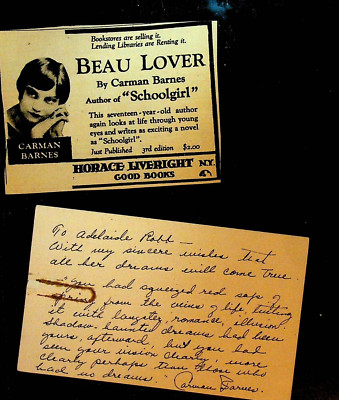 Bookstores are selling it.
Lending Libraries are Renting it.
BEAU LOVER
By Carman Barnes
Author of "Schoolgirl"
This seventeen-year-old author
again looks at life through young
eyes and writes as exciting a novel
as "Schoolgirl".
Just Published 3rd edition $2.00
CARMAN
BARNES
HORACE LIVERIGHT N.Y.
GOOD BOOKS
To Adelaide Robb —
With my sincere wishes that
all her dreams will come true.
"you had squeezed red sap of
spring from the veins of life, tinting
it with laughter, romance, illusion.
Shadow-haunted dreams had been
yours, afterward, but you had
seen your vision clearly, more
clearly perhaps than those who
had no dreams." Carman Barnes.